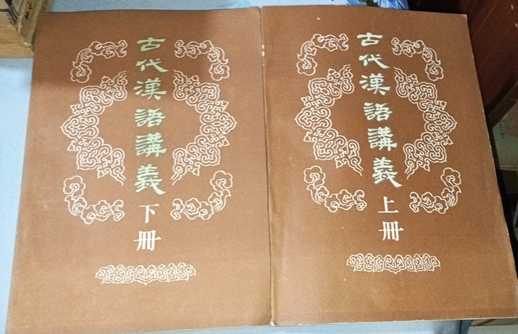 古代漢語講義
下冊
古代漢語講義
上冊